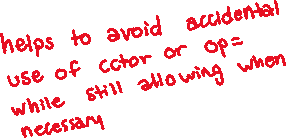 helps to avoid accidental
use of cctor or op=
while still allowing when
necessary